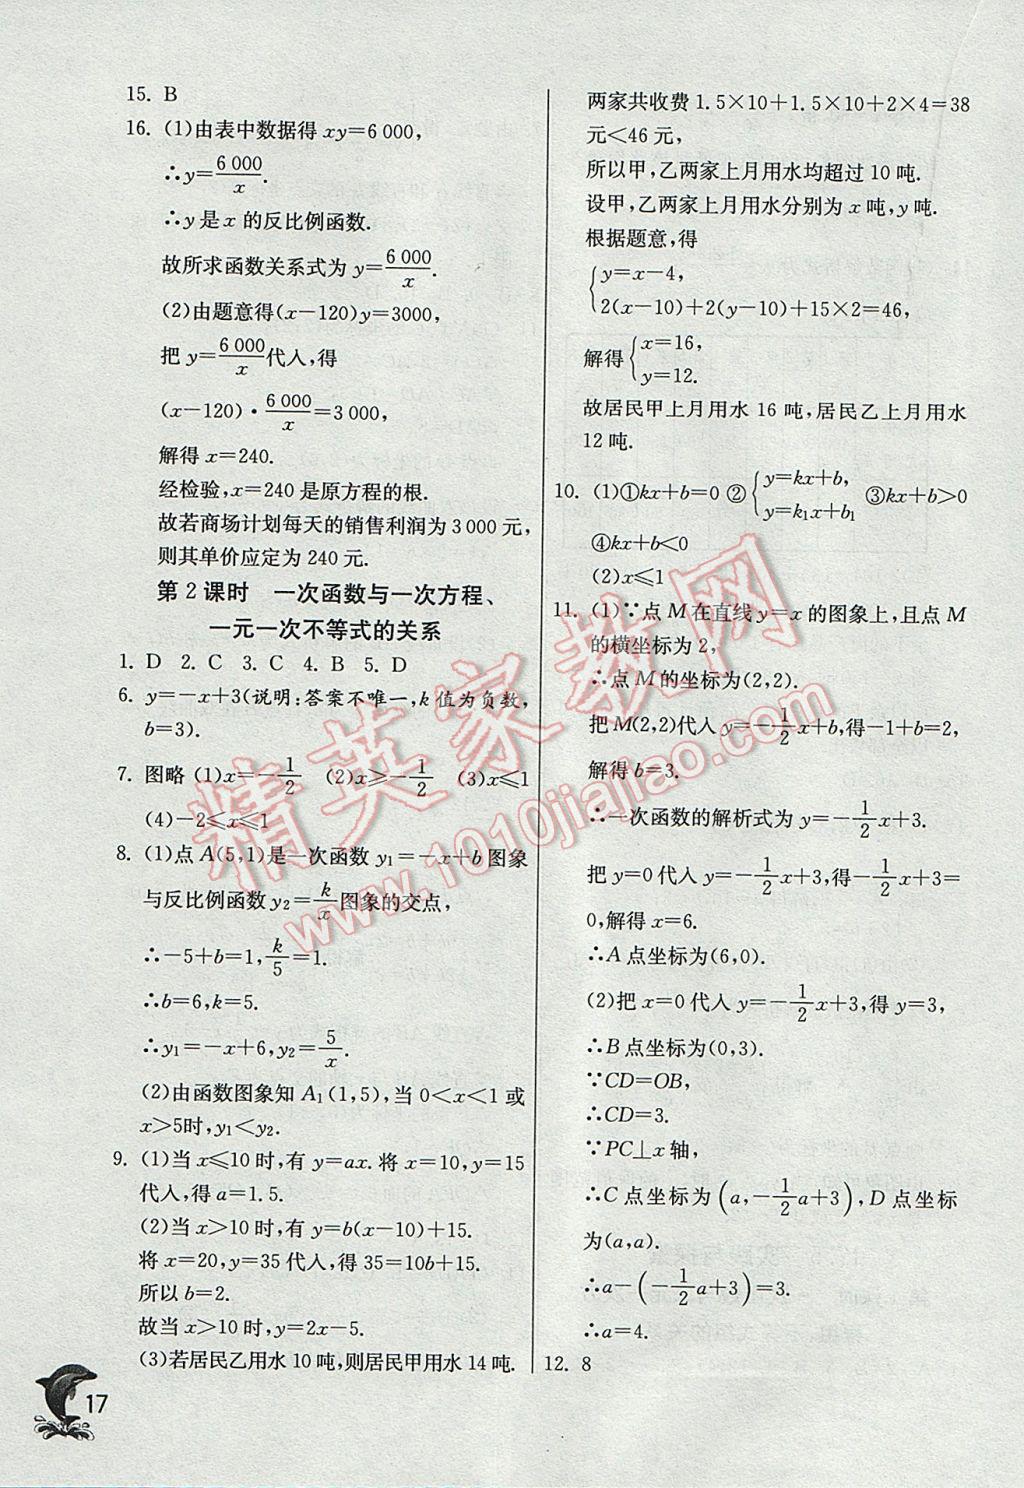 15. B
16. (1)由表中数据得 xy=6 000,
∴y=6 000/x.
∴y 是 x 的反比例函数.
故所求函数关系式为 y=6 000/x.
(2)由题意得(x−120)y=3000,
把 y=6 000/x代入,得
(x−120)·6 000/x=3 000,
解得 x=240.
经检验,x=240 是原方程的根.
故若商场计划每天的销售利润为 3 000 元,
则其单价应定为 240 元.
第 2 课时 一次函数与一次方程、
一元一次不等式的关系
1. D 2. C 3. C 4. B 5. D
6. y=−x+3(说明:答案不唯一,k 值为负数,
b=3).
7. 图略 (1)x=−1/2 (2)x≥−1/2 (3)x≤1
(4)−2≤x≤1
8. (1)点 A(5,1)是一次函数 y₁=−x+b 图象
与反比例函数 y₂=k/x图象的交点,
∴−5+b=1,k/5=1.
∴b=6,k=5.
∴y₁=−x+6,y₂=5/x.
(2)由函数图象知 A₁(1,5),当 0<x<1 或
x>5时,y₁<y₂.
9. (1)当 x≤10 时,有 y=ax. 将 x=10,y=15
代入,得 a=1.5.
(2)当 x>10 时,有 y=b(x−10)+15.
将 x=20,y=35 代入,得 35=10b+15.
所以 b=2.
故当 x>10 时,y=2x−5.
(3)若居民乙用水 10 吨,则居民甲用水 14 吨.
17
两家共收费 1.5×10+1.5×10+2×4=38
元<46 元,
所以甲,乙两家上月用水均超过 10 吨.
设甲,乙两家上月用水分别为 x 吨,y吨.
根据题意,得
{y=x−4,
2(x−10)+2(y−10)+15×2=46,
解得{x=16,
y=12.
故居民甲上月用水 16 吨,居民乙上月用水
12 吨.
10. (1)①kx+b=0 ②{y=kx+b, ③kx+b>0
y=k₁x+b₁
④kx+b<0
(2)x≤1
11. (1)∵点 M 在直线 y=x 的图象上,且点 M
的横坐标为 2,
∴点 M 的坐标为(2,2).
把 M(2,2)代入 y=−1/2x+b,得−1+b=2,
解得 b=3.
∴一次函数的解析式为 y=−1/2x+3.
把 y=0 代入 y=−1/2x+3,得−1/2x+3=
0,解得 x=6.
∴A 点坐标为(6,0).
(2)把 x=0 代入 y=−1/2x+3,得 y=3,
∴B 点坐标为(0,3).
∵CD=OB,
∴CD=3.
∵PC⊥x 轴,
∴C 点坐标为(a,−1/2a+3),D 点坐标
为(a,a).
∴a−(−1/2a+3)=3.
∴a=4.
12. 8
精英家教网
www.1010jiajiao.com